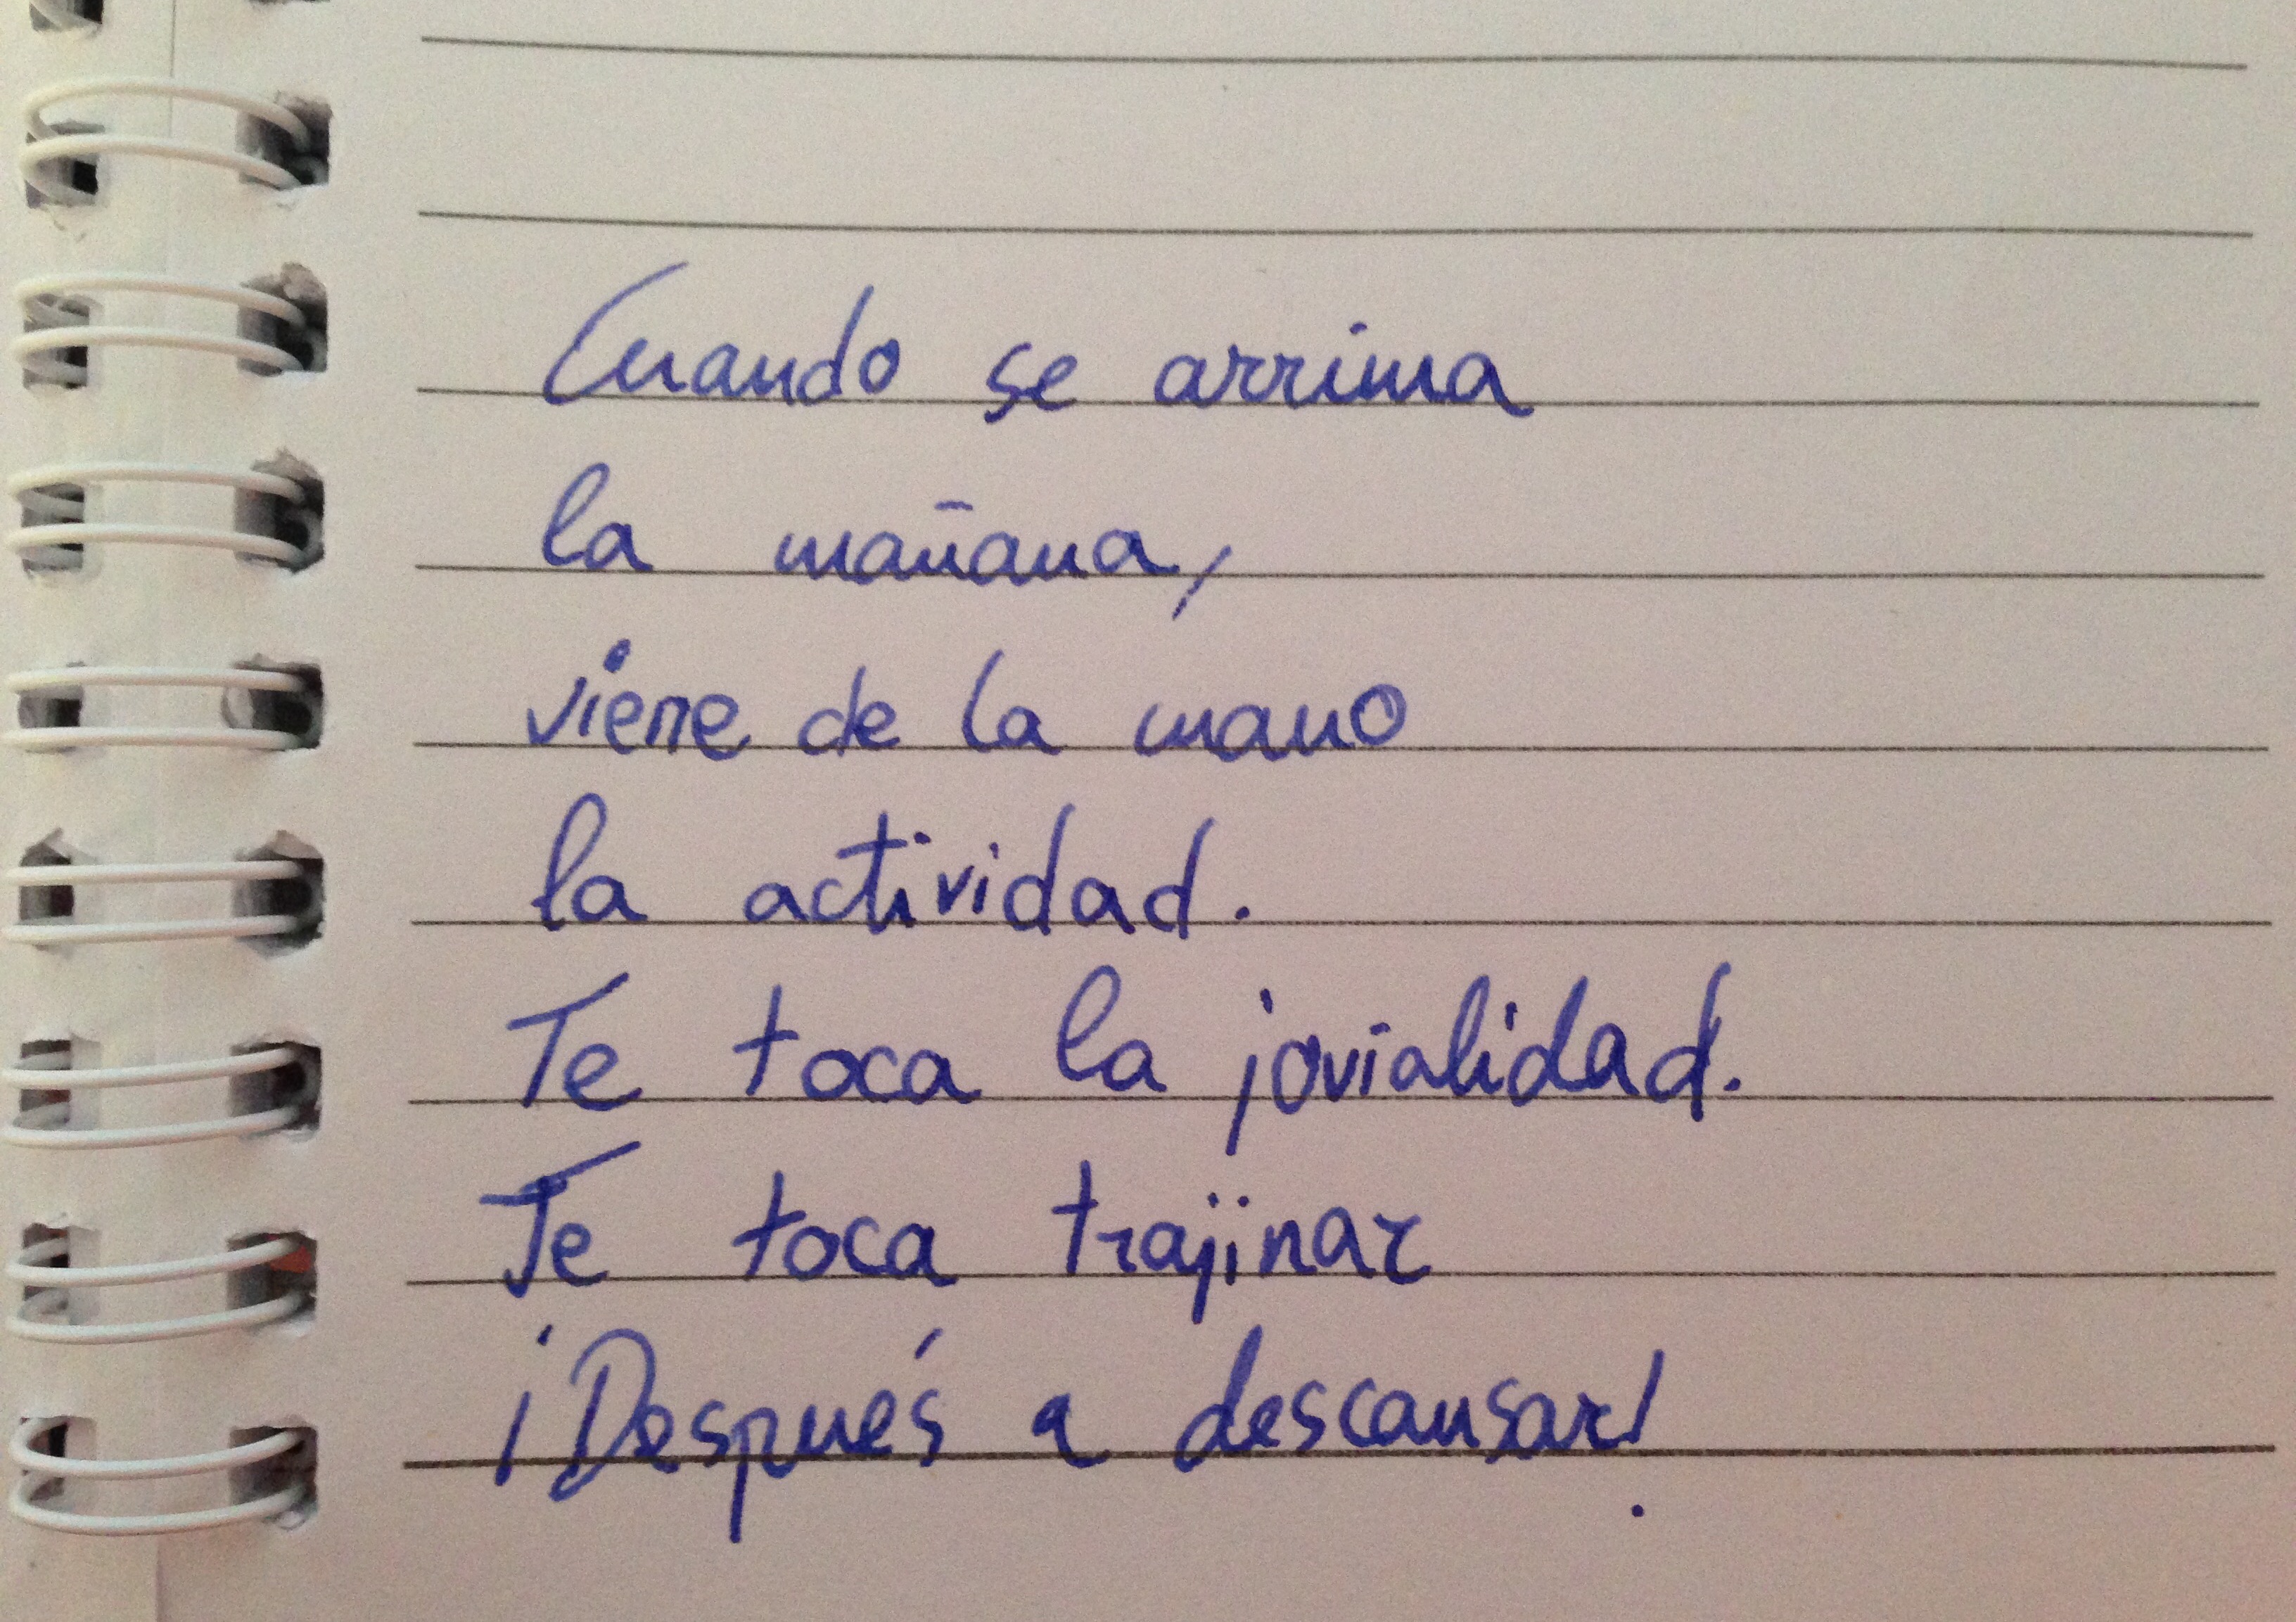 Cuando se arrima
la mañana,
viene de la mano
la actividad.
Te toca la jovialidad.
Te toca trajinar
¡Después a descansar!